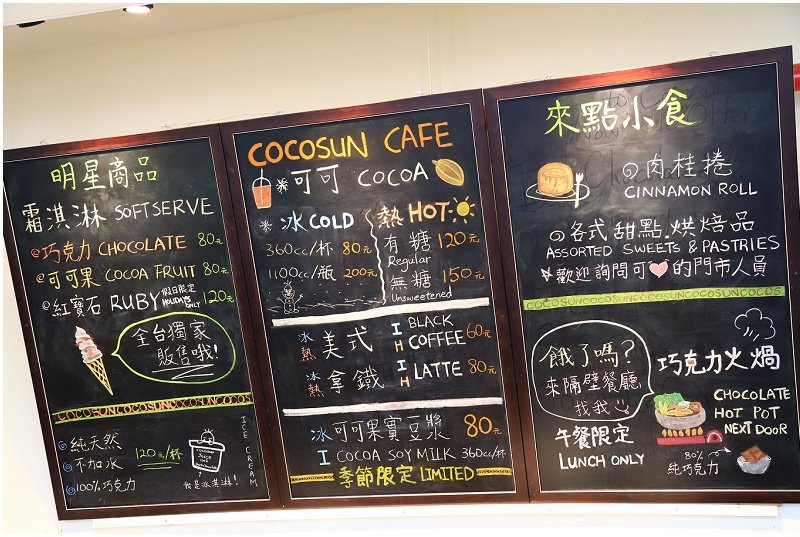 明星商品
霜淇淋 SOFTSERVE
巧克力 CHOCOLATE 80元
可可果 COCOA FRUIT 80元
紅寶石 RUBY 假日限定 HOLIDAYS ONLY 120元
全台獨家
販售哦!
COCOSUNCOCOSUNCOCOSUNCOCOSUN
純天然
不加水
100%巧克力
120元/杯
ICE CREAM
我是冰淇淋!
COCOSUN CAFE
可可 COCOA
冰 COLD
360cc/杯 80元
1100cc/瓶 200元
熱 HOT
有糖 120元
Regular
無糖 150元
Unsweetened
冰 熱 美式 I H BLACK COFFEE 60元
冰 熱 拿鐵 I H LATTE 80元
冰 可可果實豆漿 80元
I COCOA SOY MILK 360cc/杯
季節限定 LIMITED
來點小食
肉桂捲
CINNAMON ROLL
各式甜點.烘焙品
ASSORTED SWEETS & PASTRIES
歡迎詢問可❤的門市人員
COCOSUNCOCOSUNCOCOSUNCOCOSUNCOCOS
餓了嗎?
來隔壁餐廳
找我
午餐限定
LUNCH ONLY
巧克力火鍋
CHOCOLATE
HOT POT
NEXT DOOR
80%
純巧克力